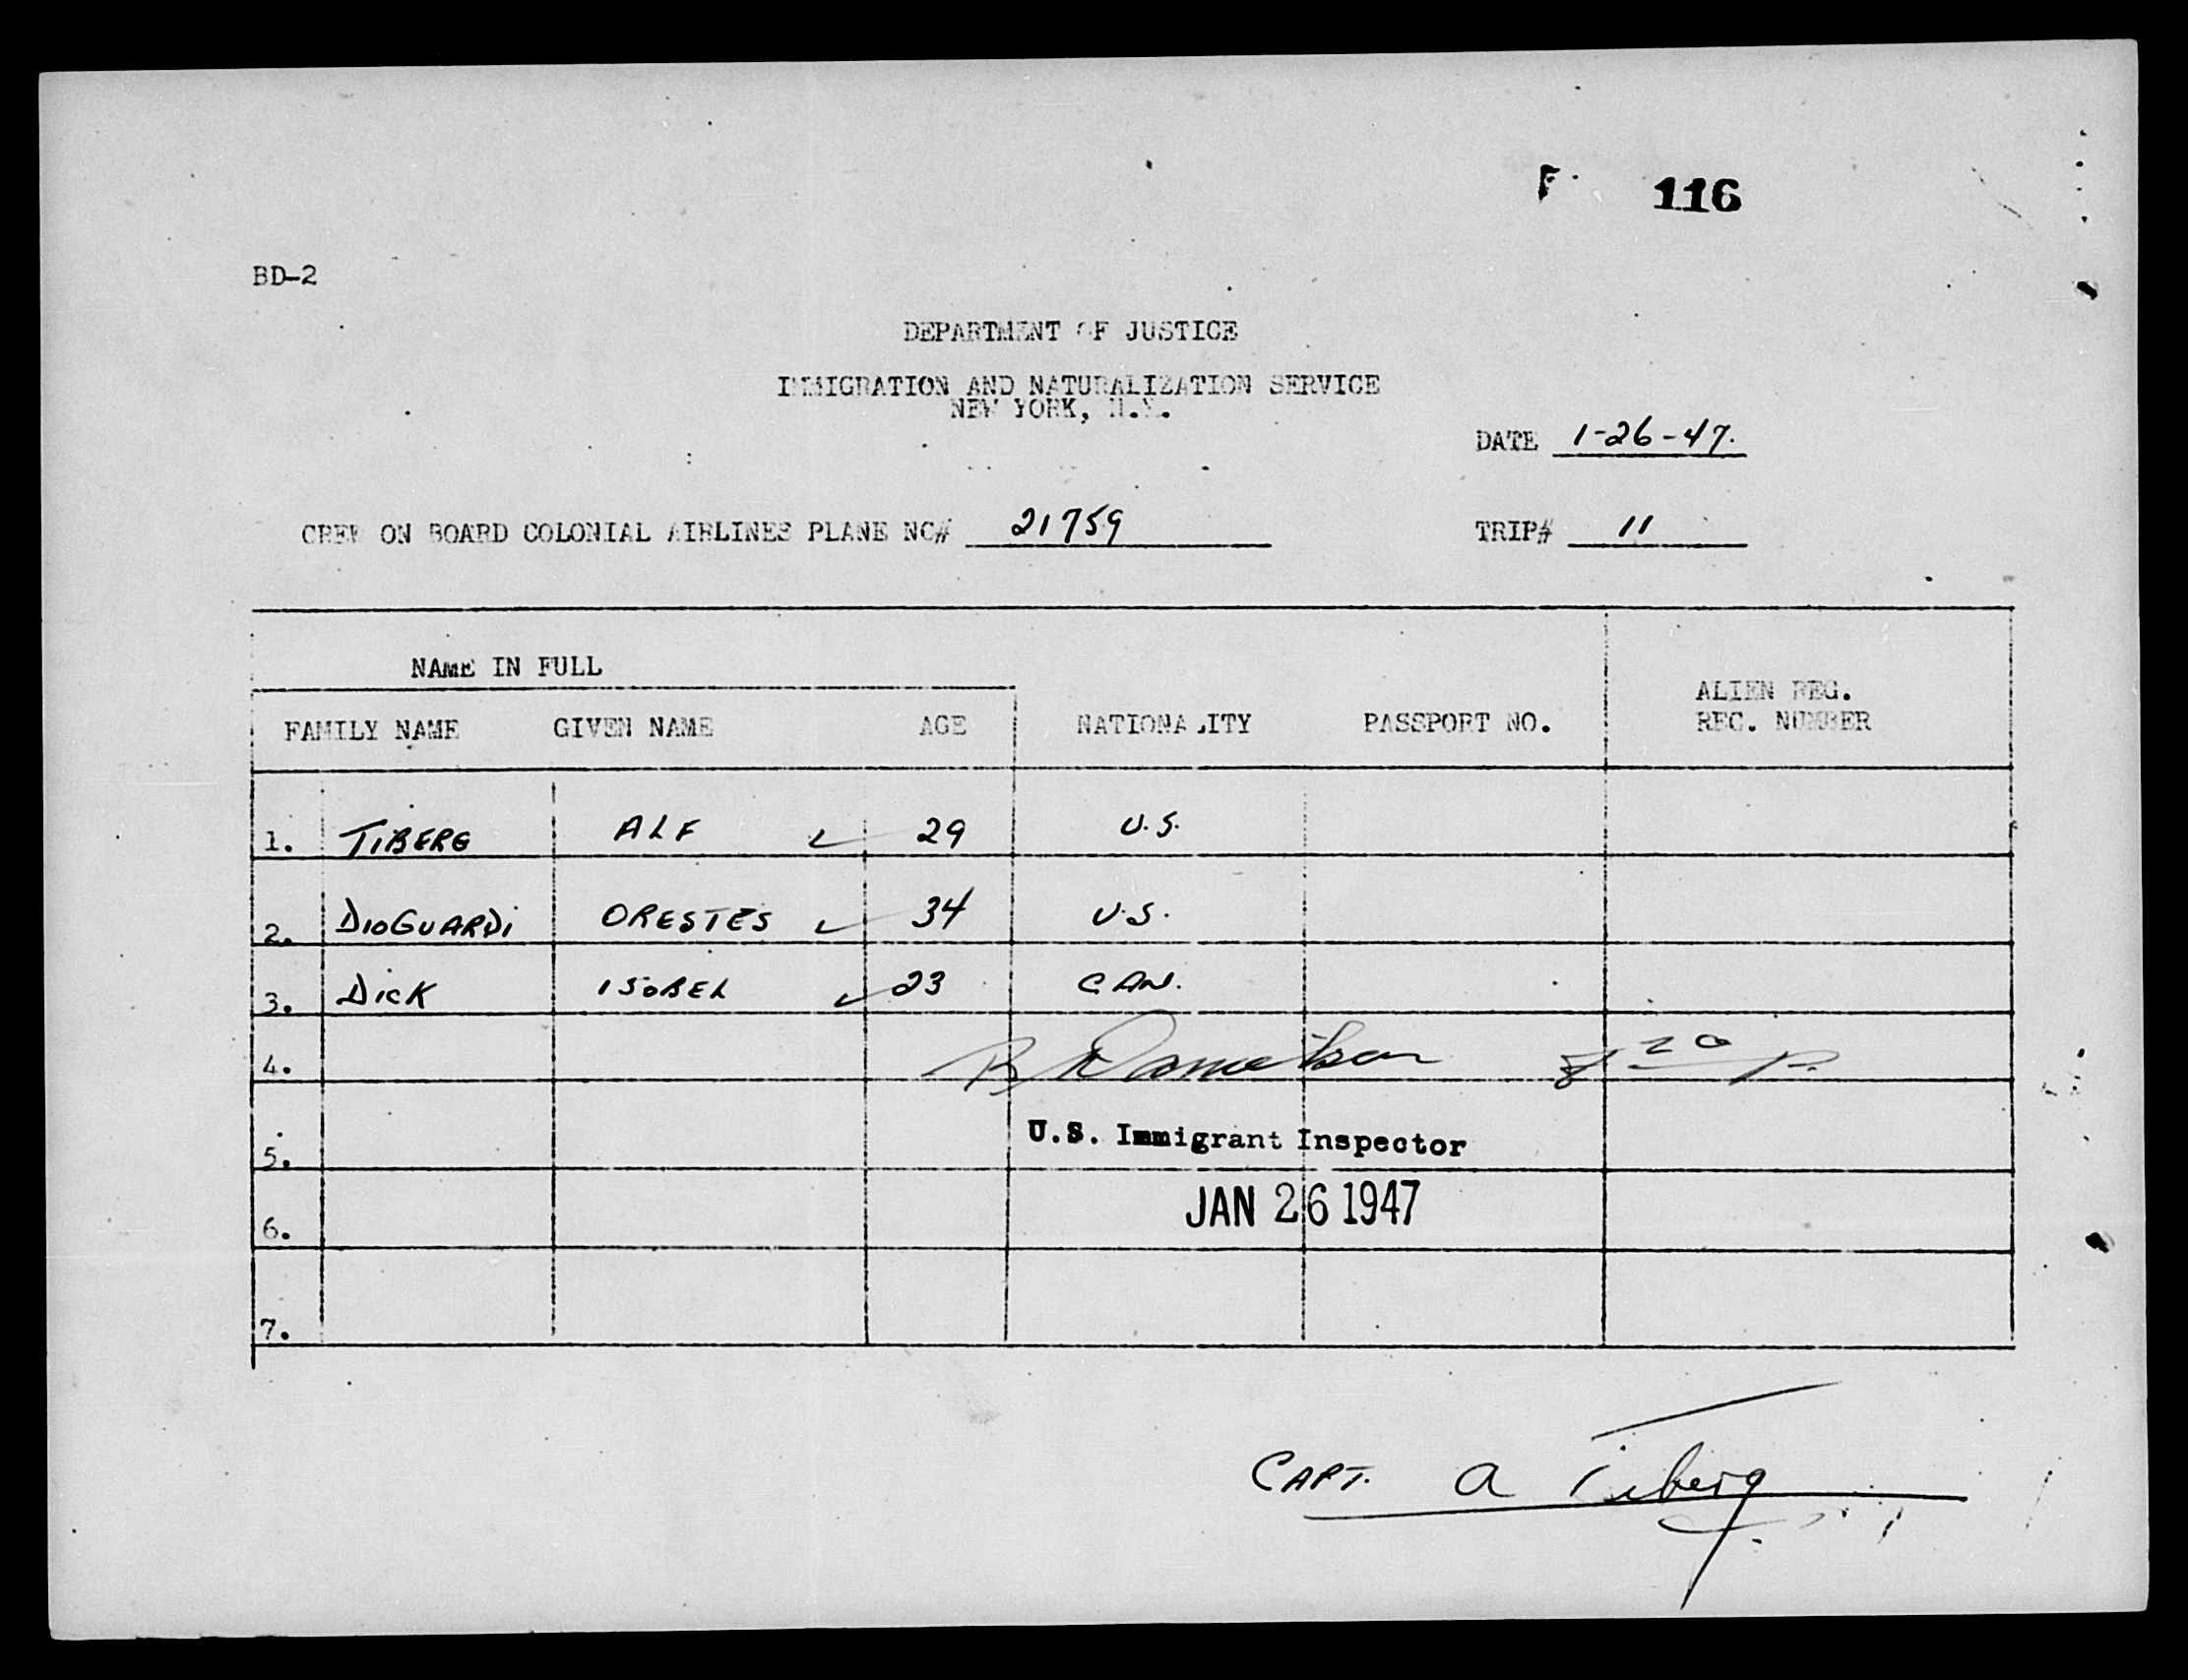 F 116
BD-2
DEPARTMENT OF JUSTICE
IMMIGRATION AND NATURALIZATION SERVICE
NEW YORK, N.Y.
DATE 1-26-47.
CREW ON BOARD COLONIAL AIRLINES PLANE NC# 21759 TRIP# 11
NAME IN FULL
FAMILY NAME GIVEN NAME AGE NATIONALITY PASSPORT NO. ALIEN REG. REC. NUMBER
1. TIBERG ALF ✓ 29 U.S.
2. DIOGUARDI ORESTES ✓ 34 U.S.
3. DICK ISOBEL ✓ 23 CAN.
4. 8 20 P.
5. U.S. Immigrant Inspector
6. JAN 26 1947
7.
CAPT. A Tiberg